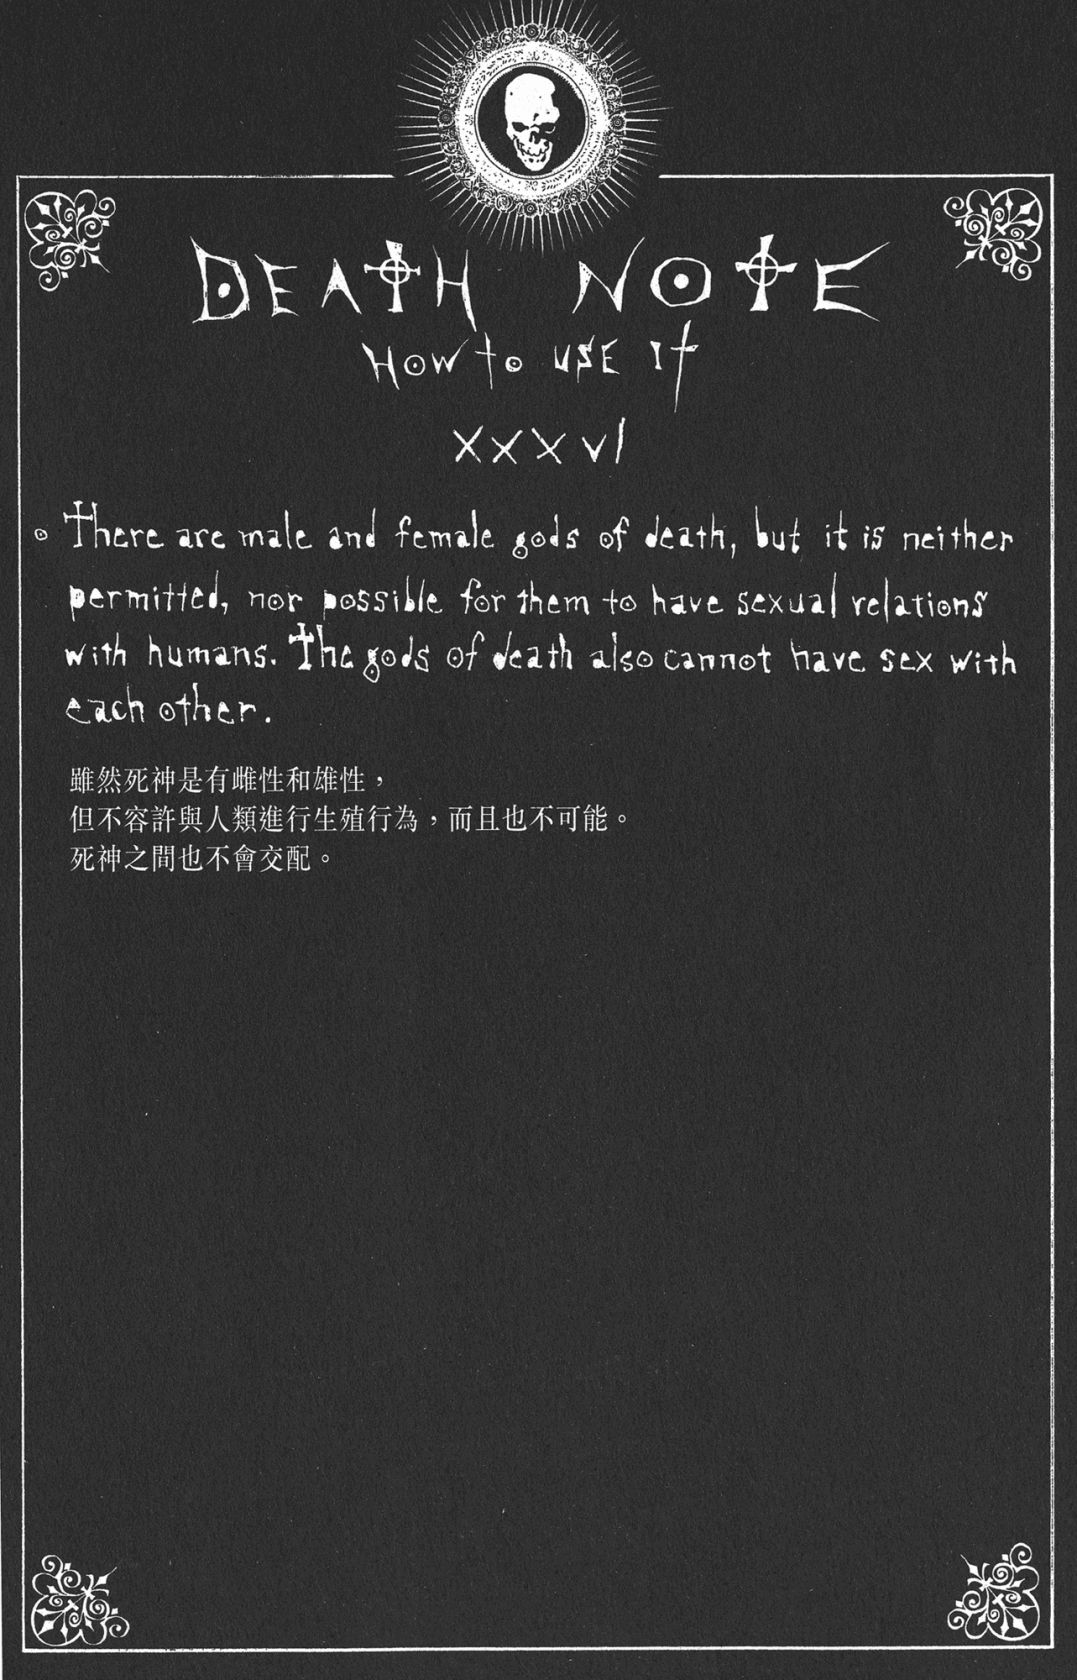 DEATH NOTE
HOW to USE It
XXXVI
There are male and female gods of death, but it is neither
permitted, nor possible for them to have sexual relations
with humans. The gods of death also cannot have sex with
each other.
雖然死神是有雌性和雄性，
但不容許與人類進行生殖行為，而且也不可能。
死神之間也不會交配。